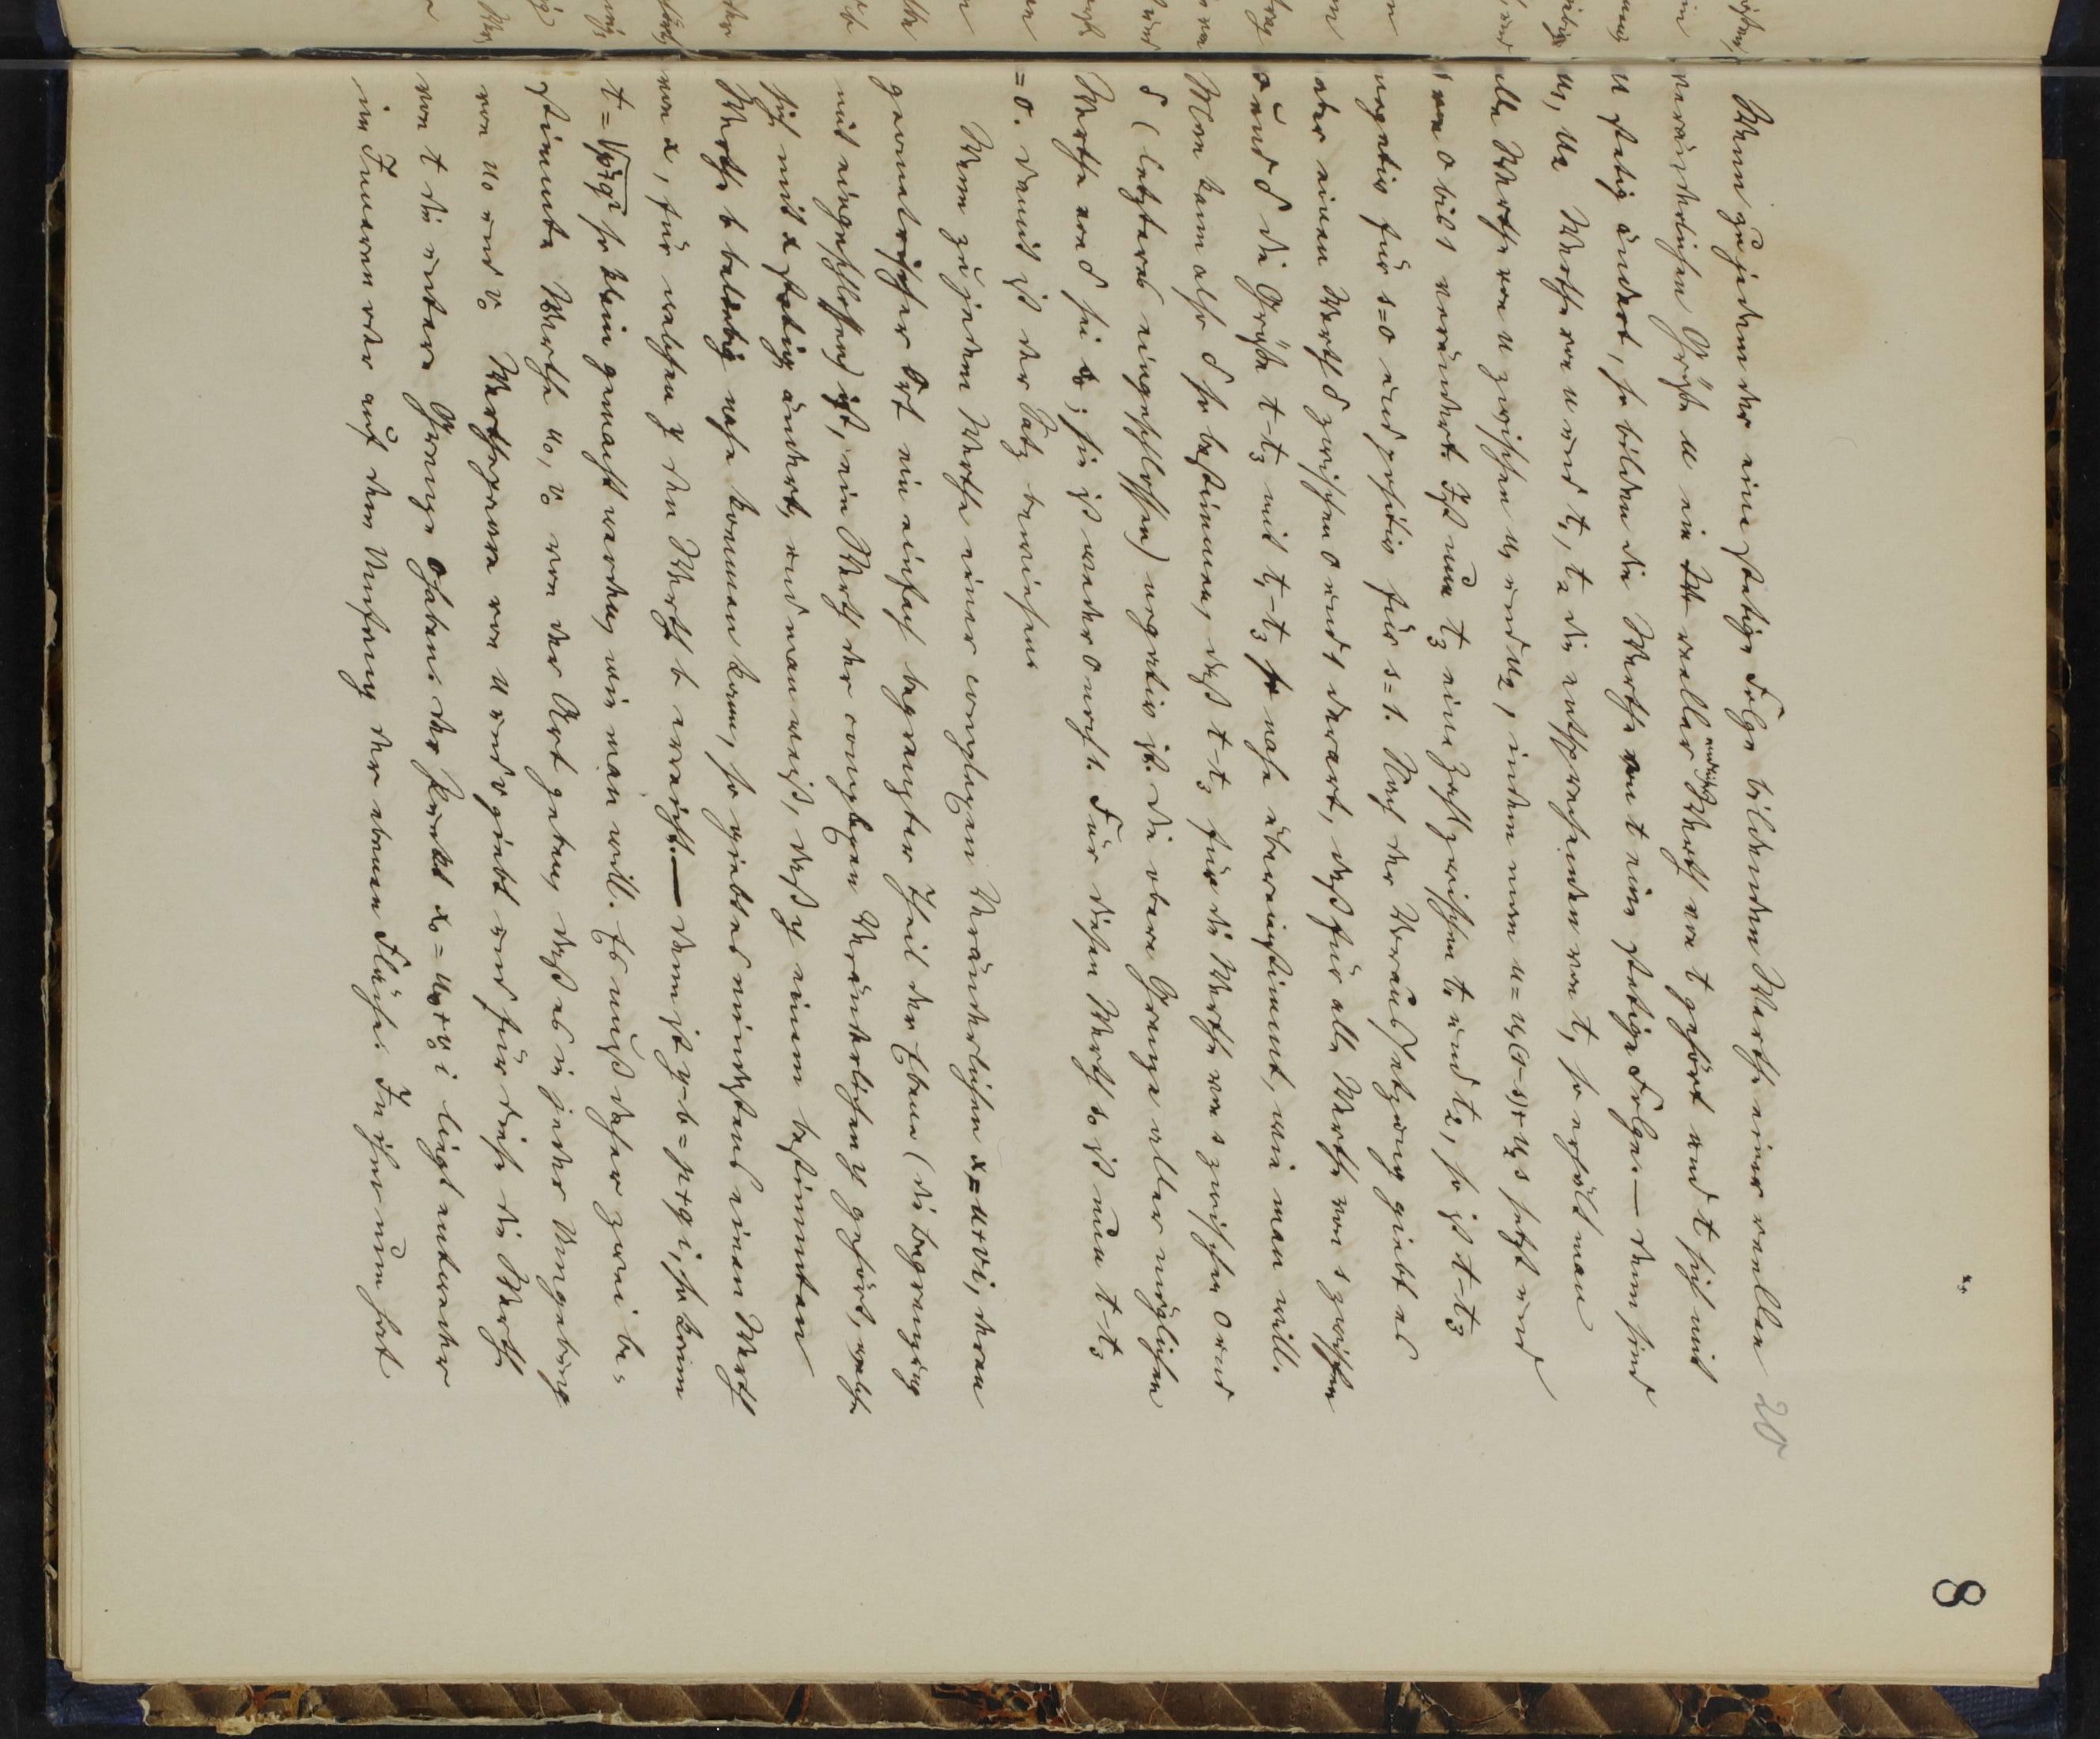 8
20
Wenn zu jedem der eine stetige Folge bildenden Werthe einer reellen
veränderlichen Größe u ein reeller endlicher Werth von t gehört und t sich mit
u stetig ändert, so bilden die Werthe von t eine stetige Folge. — Denn sind
u₁, u₂ Werthe von u und t₁, t₂ die entsprechenden von t, so erhält man
alle Werthe von u zwischen u₁ und u₂, indem man u = u₁(1-s)+u₂s setzt und
s von 0 bis 1 verändert. Ist nun t₃ eine Zahl zwischen t₁ und t₂, so ist t-t₃
negativ für s=0 und positiv für s=1. Nach der Voraussetzung giebt es
aber einen Werth δ zwischen 0 und 1 derart, daß für alle Werthe von s zwischen
0 und δ die Größe t-t₃ mit t₁-t₃ so nahe übereinstimmt, wie man will.
Man kann also δ so bestimmen, daß t-t₃ für die Werthe von s zwischen 0 und
δ (letzteres eingeschlossen) negativ ist. Die obere Grenze aller möglichen
Werthe von δ sei s₀; sie ist weder 0 noch 1. Für diesen Werth s₀ ist nun t-t₃
=0. Damit ist der Satz bewiesen.
Wenn zu jedem Werthe einer complexen Veränderlichen x=u+vi, deren
geometrischer Ort ein einfach begrenzter Theil der Ebene (die Begrenzung
mit eingeschlossen) ist, ein Werth der complexen Veränderlichen y gehört, welche
sich mit x stetig ändert, und man weiß, daß y einem bestimmten
Werthe b beliebig nahe kommen kann, so giebt es mindestens einen Werth
von x, für welchen y den Werth b erreicht. — Denn ist y-b=p+qi, so kann
t=√p²+q² so klein gemacht werden, wie man will. Es muß daher zwei be-
stimmte Werthe u₀, v₀ von der Art geben, daß es in jeder Umgebung
von u₀ und v₀ Werthepaare von u und v giebt und für diese die Werthe
von t die untere Grenze 0 haben. Der Punkt x₀ = u₀+v₀i liegt entweder
im Inneren oder auf dem Umfang der ebenen Fläche. In ihm nun hat